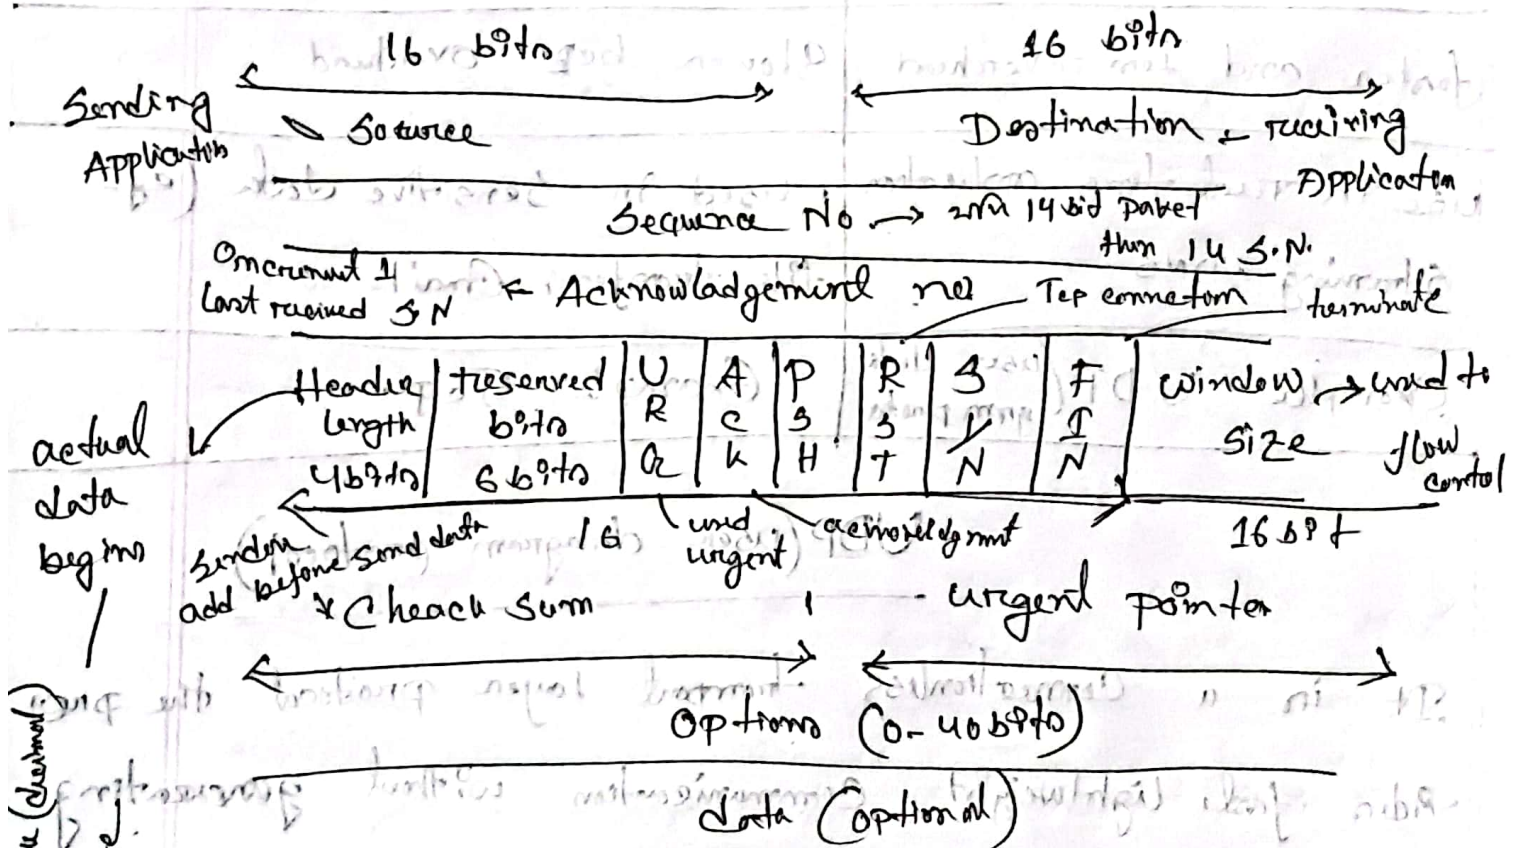 16 bits 16 bits
Sending Application Source Destination receiving Application
Sequence No → যদি 14 bid paket then 14 S.N.
Oncremnt 1 Last received S N ← Acknowladgement no Tcp connetom terminate
Header length 4bits reserved bits 6 bits URG ACK PSH RST SYN FIN window size → used to flow contol
actual data begins
Sender add before send data 16 used urgent acnowldgmnt 16 bit
* Cheack sum urgent pointer
Options (0-40bits)
data (optional)
(decimal)